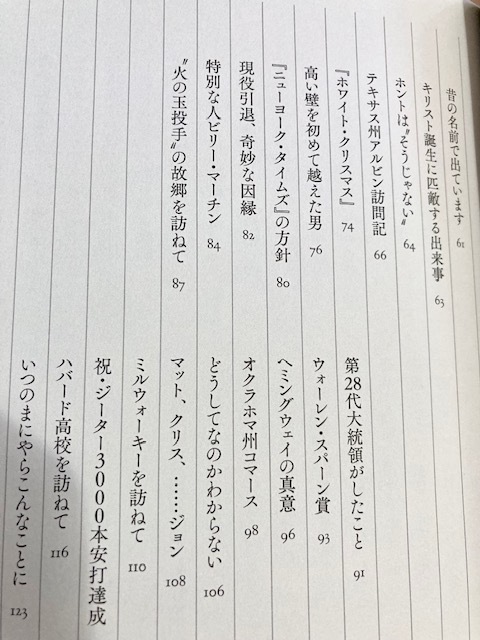 昔の名前で出ています 61
キリスト誕生に匹敵する出来事 63
ホントは〝そうじゃない〟 64
テキサス州アルビン訪問記 66
『ホワイト・クリスマス』 74
高い壁を初めて越えた男 76
『ニューヨーク・タイムズ』の方針 80
現役引退、奇妙な因縁 82
特別な人ビリー・マーチン 84
〝火の玉投手〟の故郷を訪ねて 87
第28代大統領がしたこと 91
ウォーレン・スパーン賞 93
ヘミングウェイの真意 96
オクラホマ州コマース 98
どうしてなのかわからない 106
マット、クリス、……ジョン 108
ミルウォーキーを訪ねて 110
祝・ジーター3000本安打達成
ハバード高校を訪ねて 116
いつのまにやらこんなことに 123